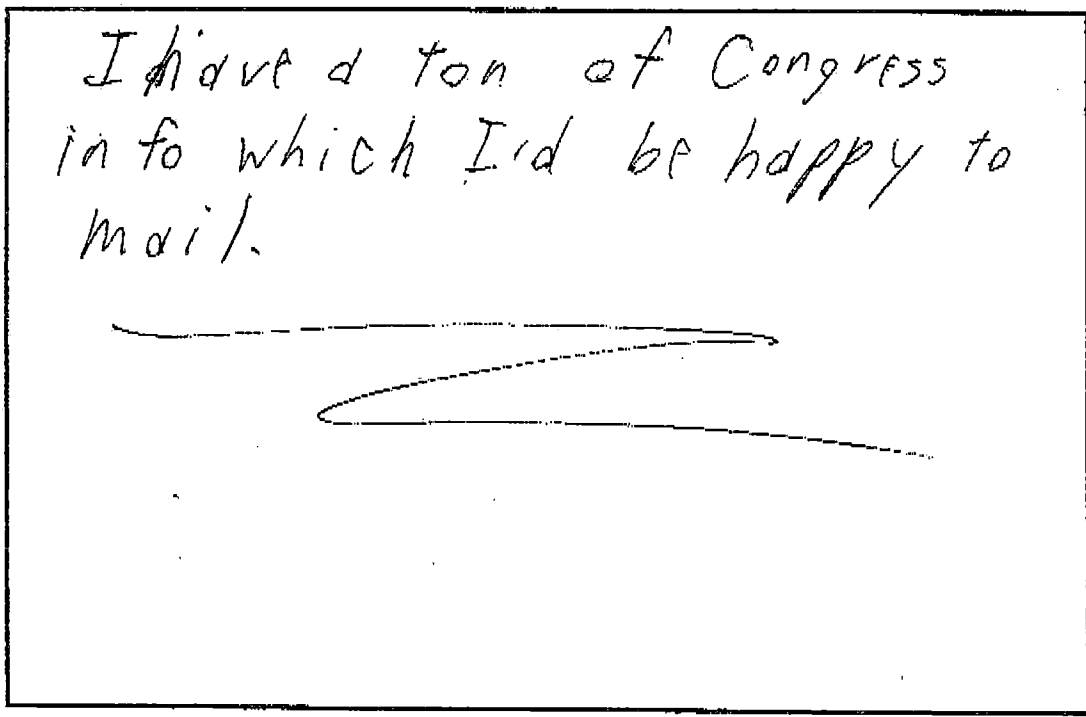 I have a ton of Congress
info which I'd be happy to
mail.